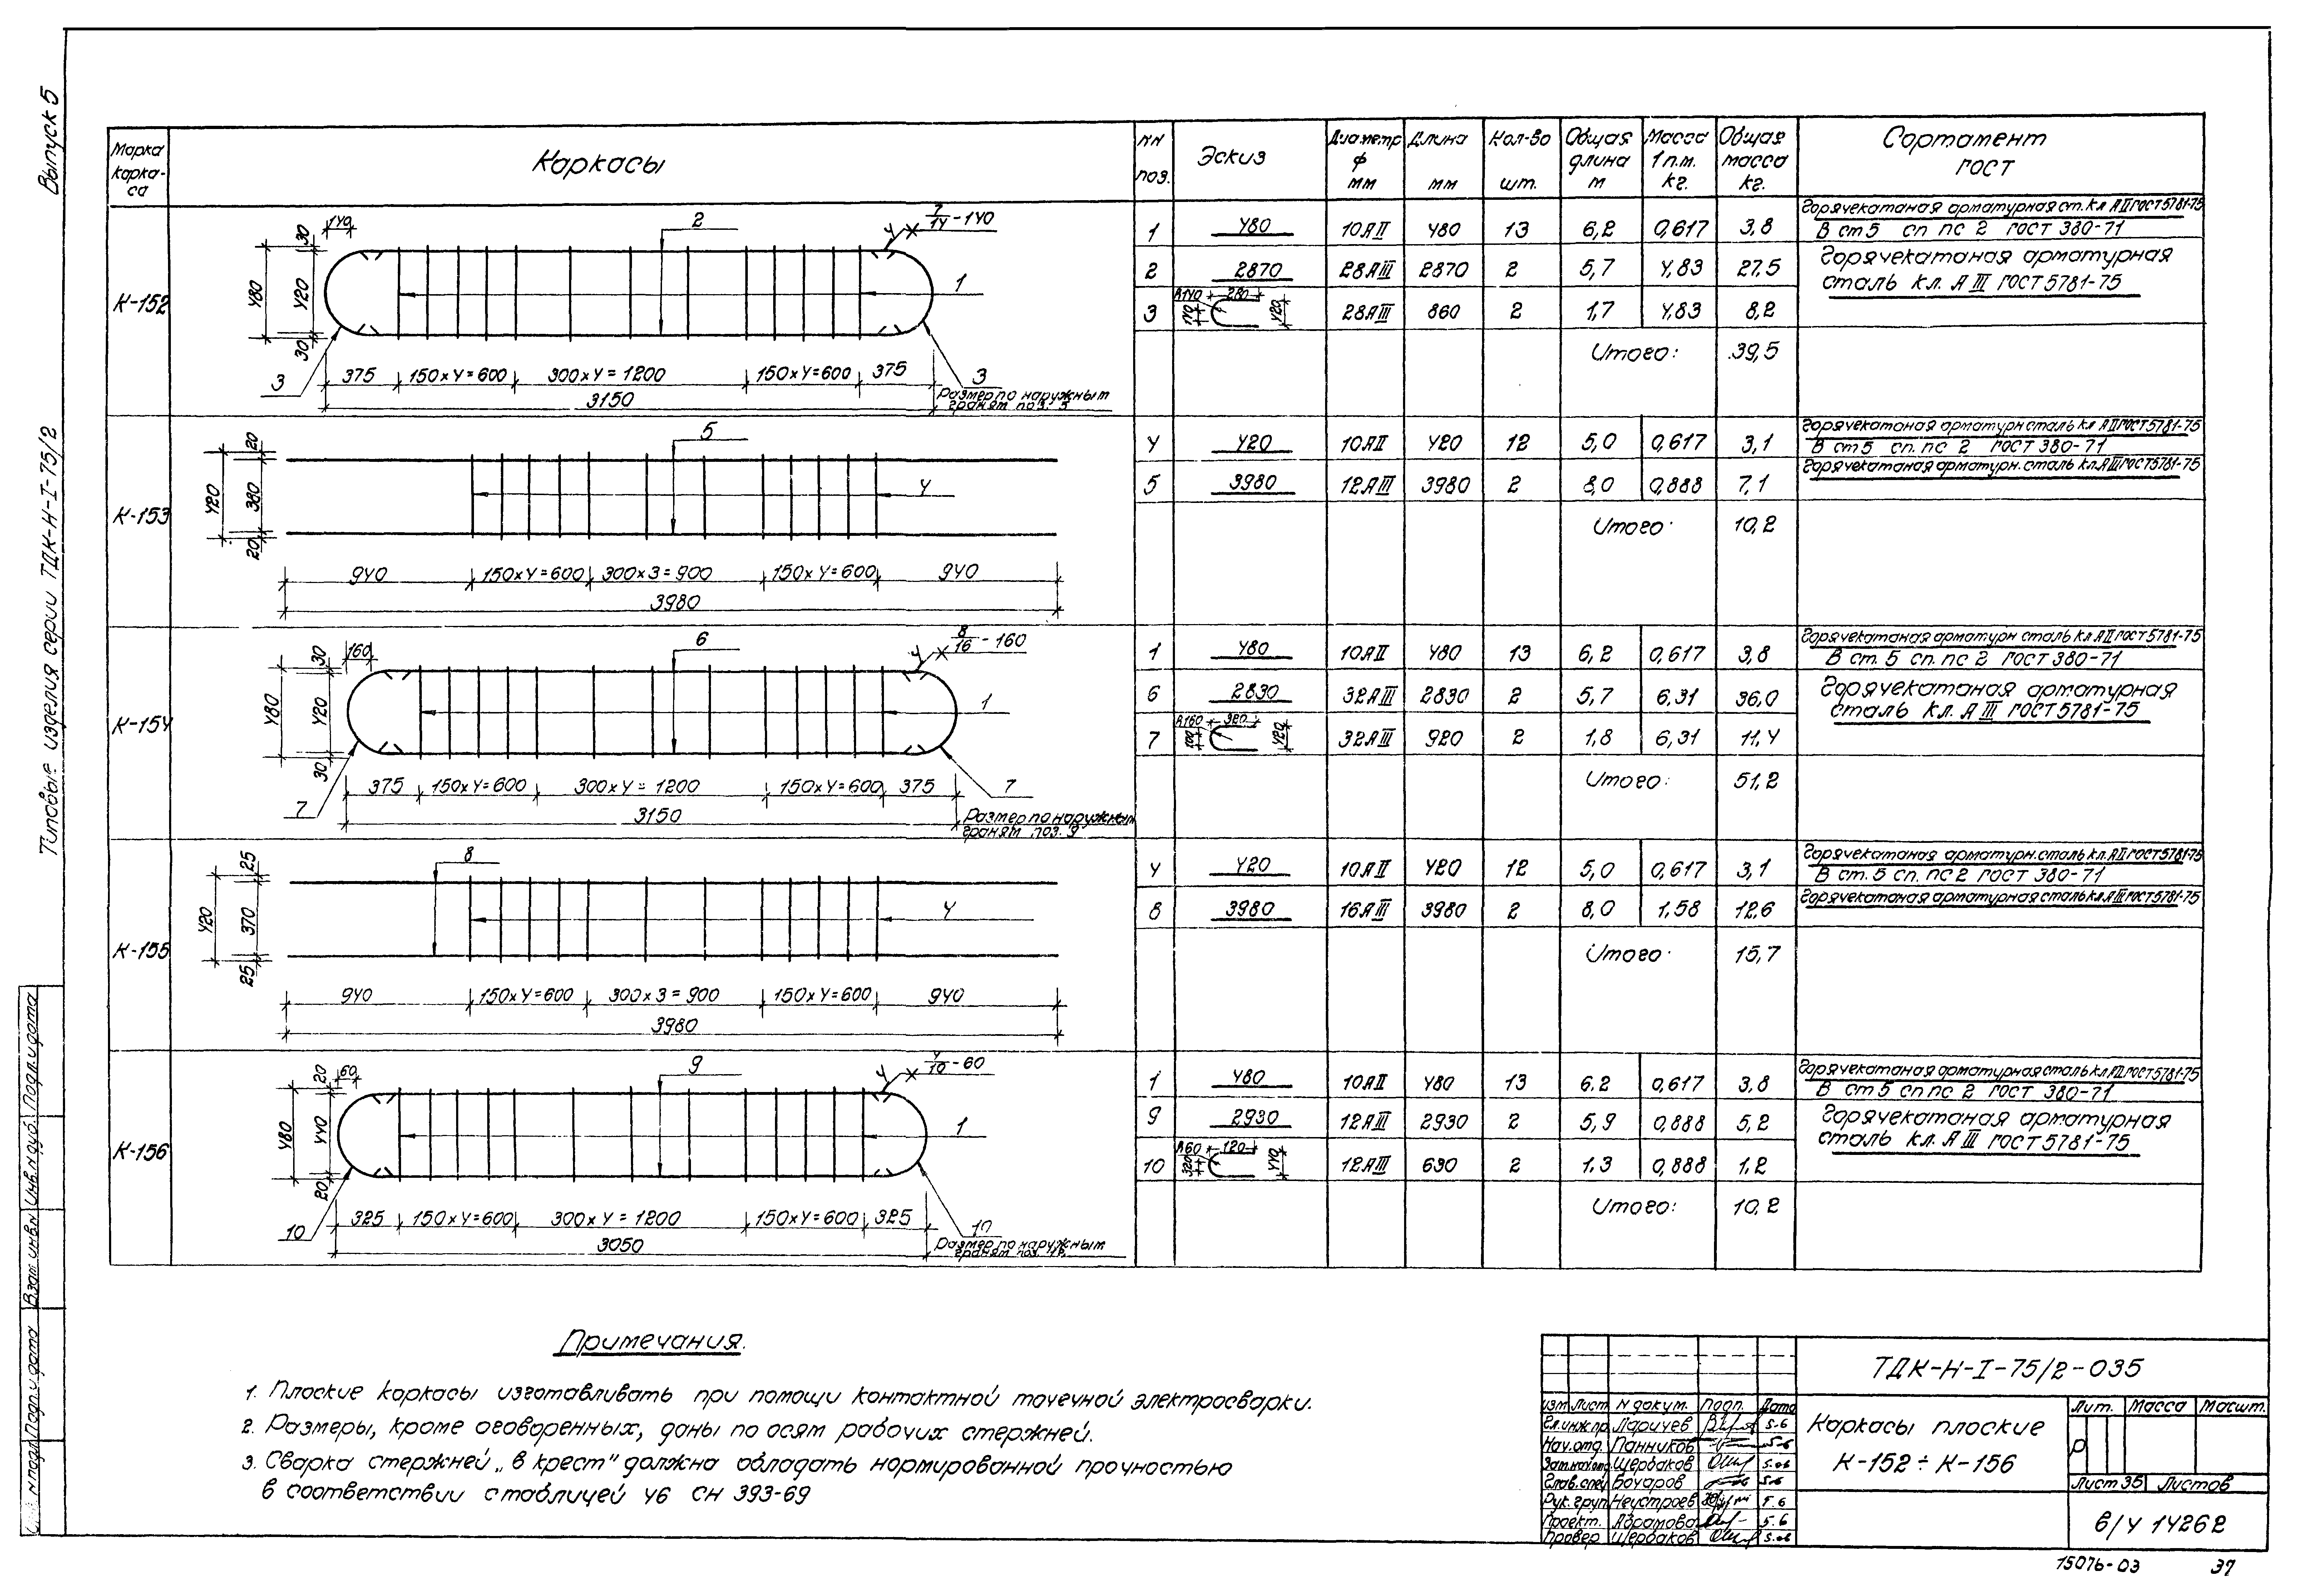 Выпуск 5
Типовые изделия серии ТДК-Н-I-75/2
Марка каркаса
Каркасы
NN поз.
Эскиз
Диаметр ф мм
Длина мм
Кол-во шт.
Общая длина м
Масса 1 п.м. кг.
Общая масса кг.
Сортамент ГОСТ
К-152
140
2
4
7/14-140
30
480
420
30
1
3
3
375
150х4=600
300х4=1200
150х4=600
375
3150
Размер по наружным
граням поз. 3
1 480 10АII 480 13 6,2 0,617 3,8
Горячекатаная арматурная ст. кл АII ГОСТ 5781-75
В ст5 сп пс 2 ГОСТ 380-71
2 2870 28АIII 2870 2 5,7 4,83 27,5
Горячекатаная арматурная
сталь кл. А III ГОСТ 5781-75
R140 280 420
3 28АIII 860 2 1,7 4,83 8,2
Итого: 39,5
К-153
5
20
420
380
20
4
940
150х4=600
300х3=900
150х4=600
940
3980
4 420 10АII 420 12 5,0 0,617 3,1
Горячекатаная арматурн сталь кл АII ГОСТ 5781-75
В ст5 сп. пс 2 ГОСТ 380-71
5 3980 12АIII 3980 2 8,0 0,888 7,1
Горячекатаная арматурн. сталь кл.АIII ГОСТ 5781-75
Итого: 10,2
К-154
160
6
4
8/16-160
30
480
420
30
1
7
7
375
150х4=600
300х4=1200
150х4=600
375
3150
Размер по наружным
граням поз. 9
1 480 10АII 480 13 6,2 0,617 3,8
Горячекатаная арматурн сталь кл АII ГОСТ 5781-75
В ст. 5 сп. пс 2 ГОСТ 380-71
6 2830 32АIII 2830 2 5,7 6,31 36,0
Горячекатаная арматурная
сталь кл. А III ГОСТ 5781-75
R160 320 420
7 32АIII 920 2 1,8 6,31 11,4
Итого: 51,2
К-155
8
25
420
370
25
4
940
150х4=600
300х3=900
150х4=600
940
3980
4 420 10АII 420 12 5,0 0,617 3,1
Горячекатаная арматурн. сталь кл. АII ГОСТ 5781-75
В ст. 5 сп. пс 2 ГОСТ 380-71
8 3980 16АIII 3980 2 8,0 1,58 12,6
Горячекатаная арматурная сталь кл. АIII ГОСТ 5781-75
Итого: 15,7
К-156
60
9
4
4/10-60
20
480
440
20
1
10
10
325
150х4=600
300х4=1200
150х4=600
325
3050
Размер по наружным
граням поз.
1 480 10АII 480 13 6.2 0,617 3,8
Горячекатаная арматурная сталь кл. АII ГОСТ 5781-75
В ст 5 сп пс 2 ГОСТ 380-71
9 2930 12АIII 2930 2 5,9 0,888 5,2
Горячекатаная арматурная
сталь кл. А III ГОСТ 5781-75
R60 120 320 440
10 12АIII 690 2 1,3 0,888 1,2
Итого: 10,2
Примечания.
1. Плоские каркасы изготавливать при помощи контактной точечной электросварки.
2. Размеры, кроме оговоренных, даны по осям рабочих стержней.
3. Сварка стержней „в крест" должна обладать нормированной прочностью
в соответствии с таблицей 46 СН 393-69
Инв.N дуб. Подп.и дата
Взам инв.N
Подп. и дата
ТДК-Н-I-75/2-035
Изм Лист N докум. Подп. Дата
Гл.инж.пр. Ларичев 5.6
Нач.отд. Панников 5-6
Зам.нач.отд. Щербаков 5.06
Глав.спец Бочаров 5-6
Рук.груп Неустроев 5.6
Проект. Абрамова 5.6
Провер Щербаков 5.06
Каркасы плоские
К-152 ÷ К-156
Лит. Масса Масшт.
Р
Лист 35 Листов
в/ч 14262
15076-03 37